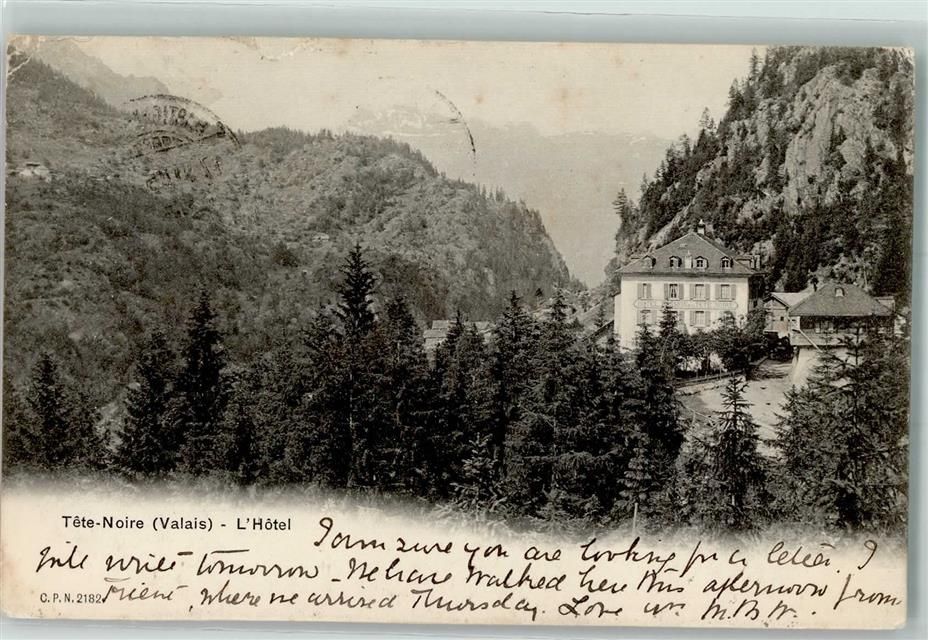 Tête-Noire (Valais) - L'Hôtel
I am sure you are looking for a letter. I
will write tomorrow - We have walked here this afternoon from
C. P. N. 2182 Trient, where we arrived Thursday. Love M.B.W.